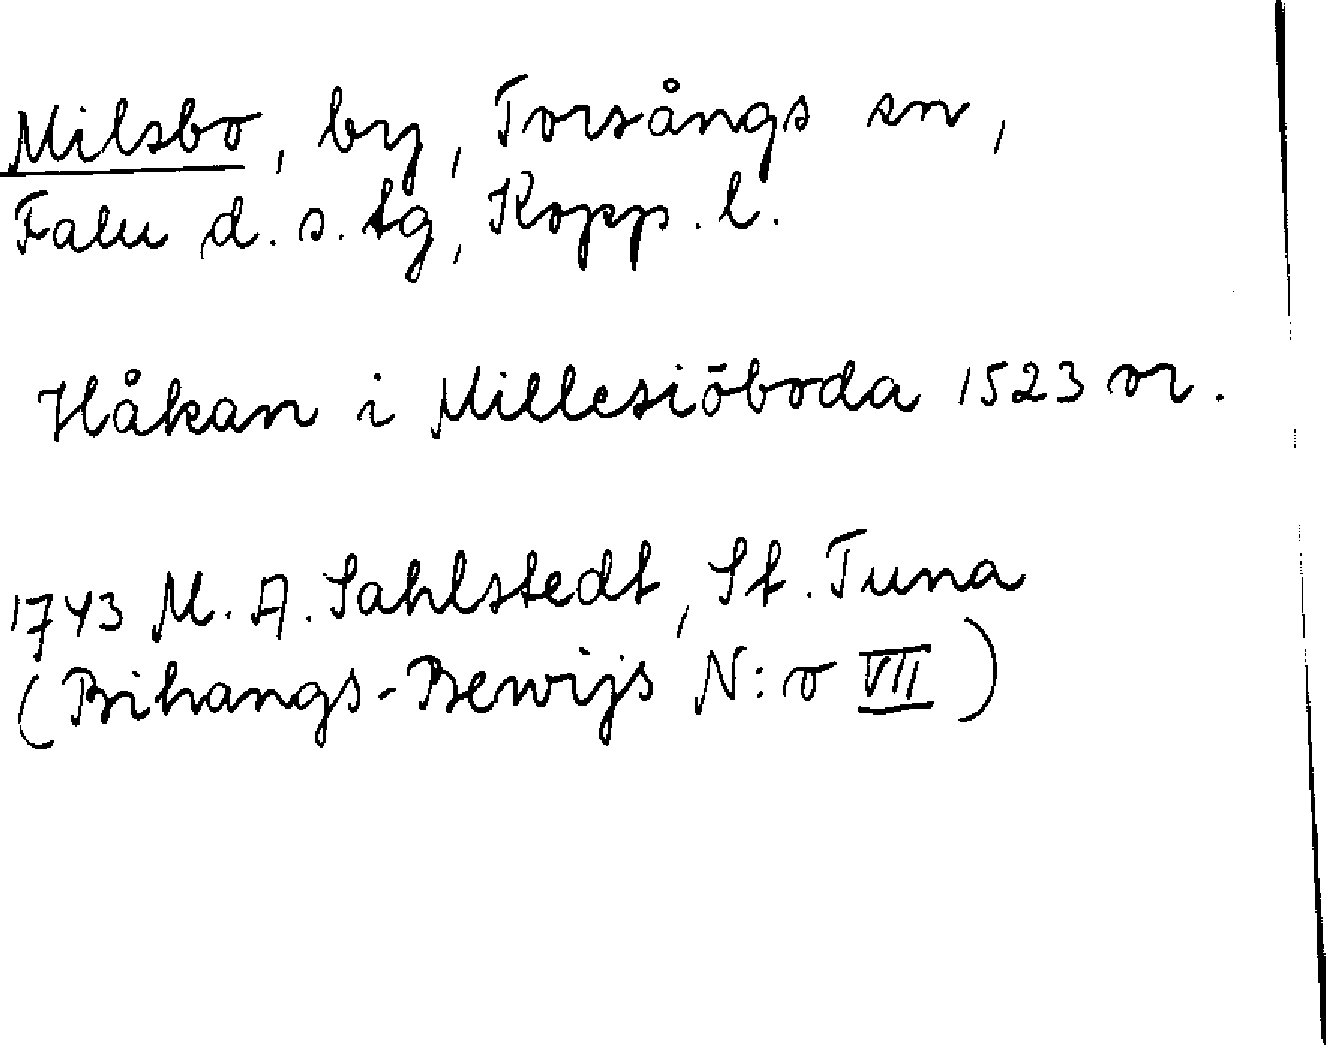 Milsbo, by, Torsångs sn,
Falu d. s. tg, Kopp. l.
Håkan i Millesiōboda 1523 or.
1743 M. A. Sahlstedt, St. Tuna
(Bihangs-Bewijs N:o VII)